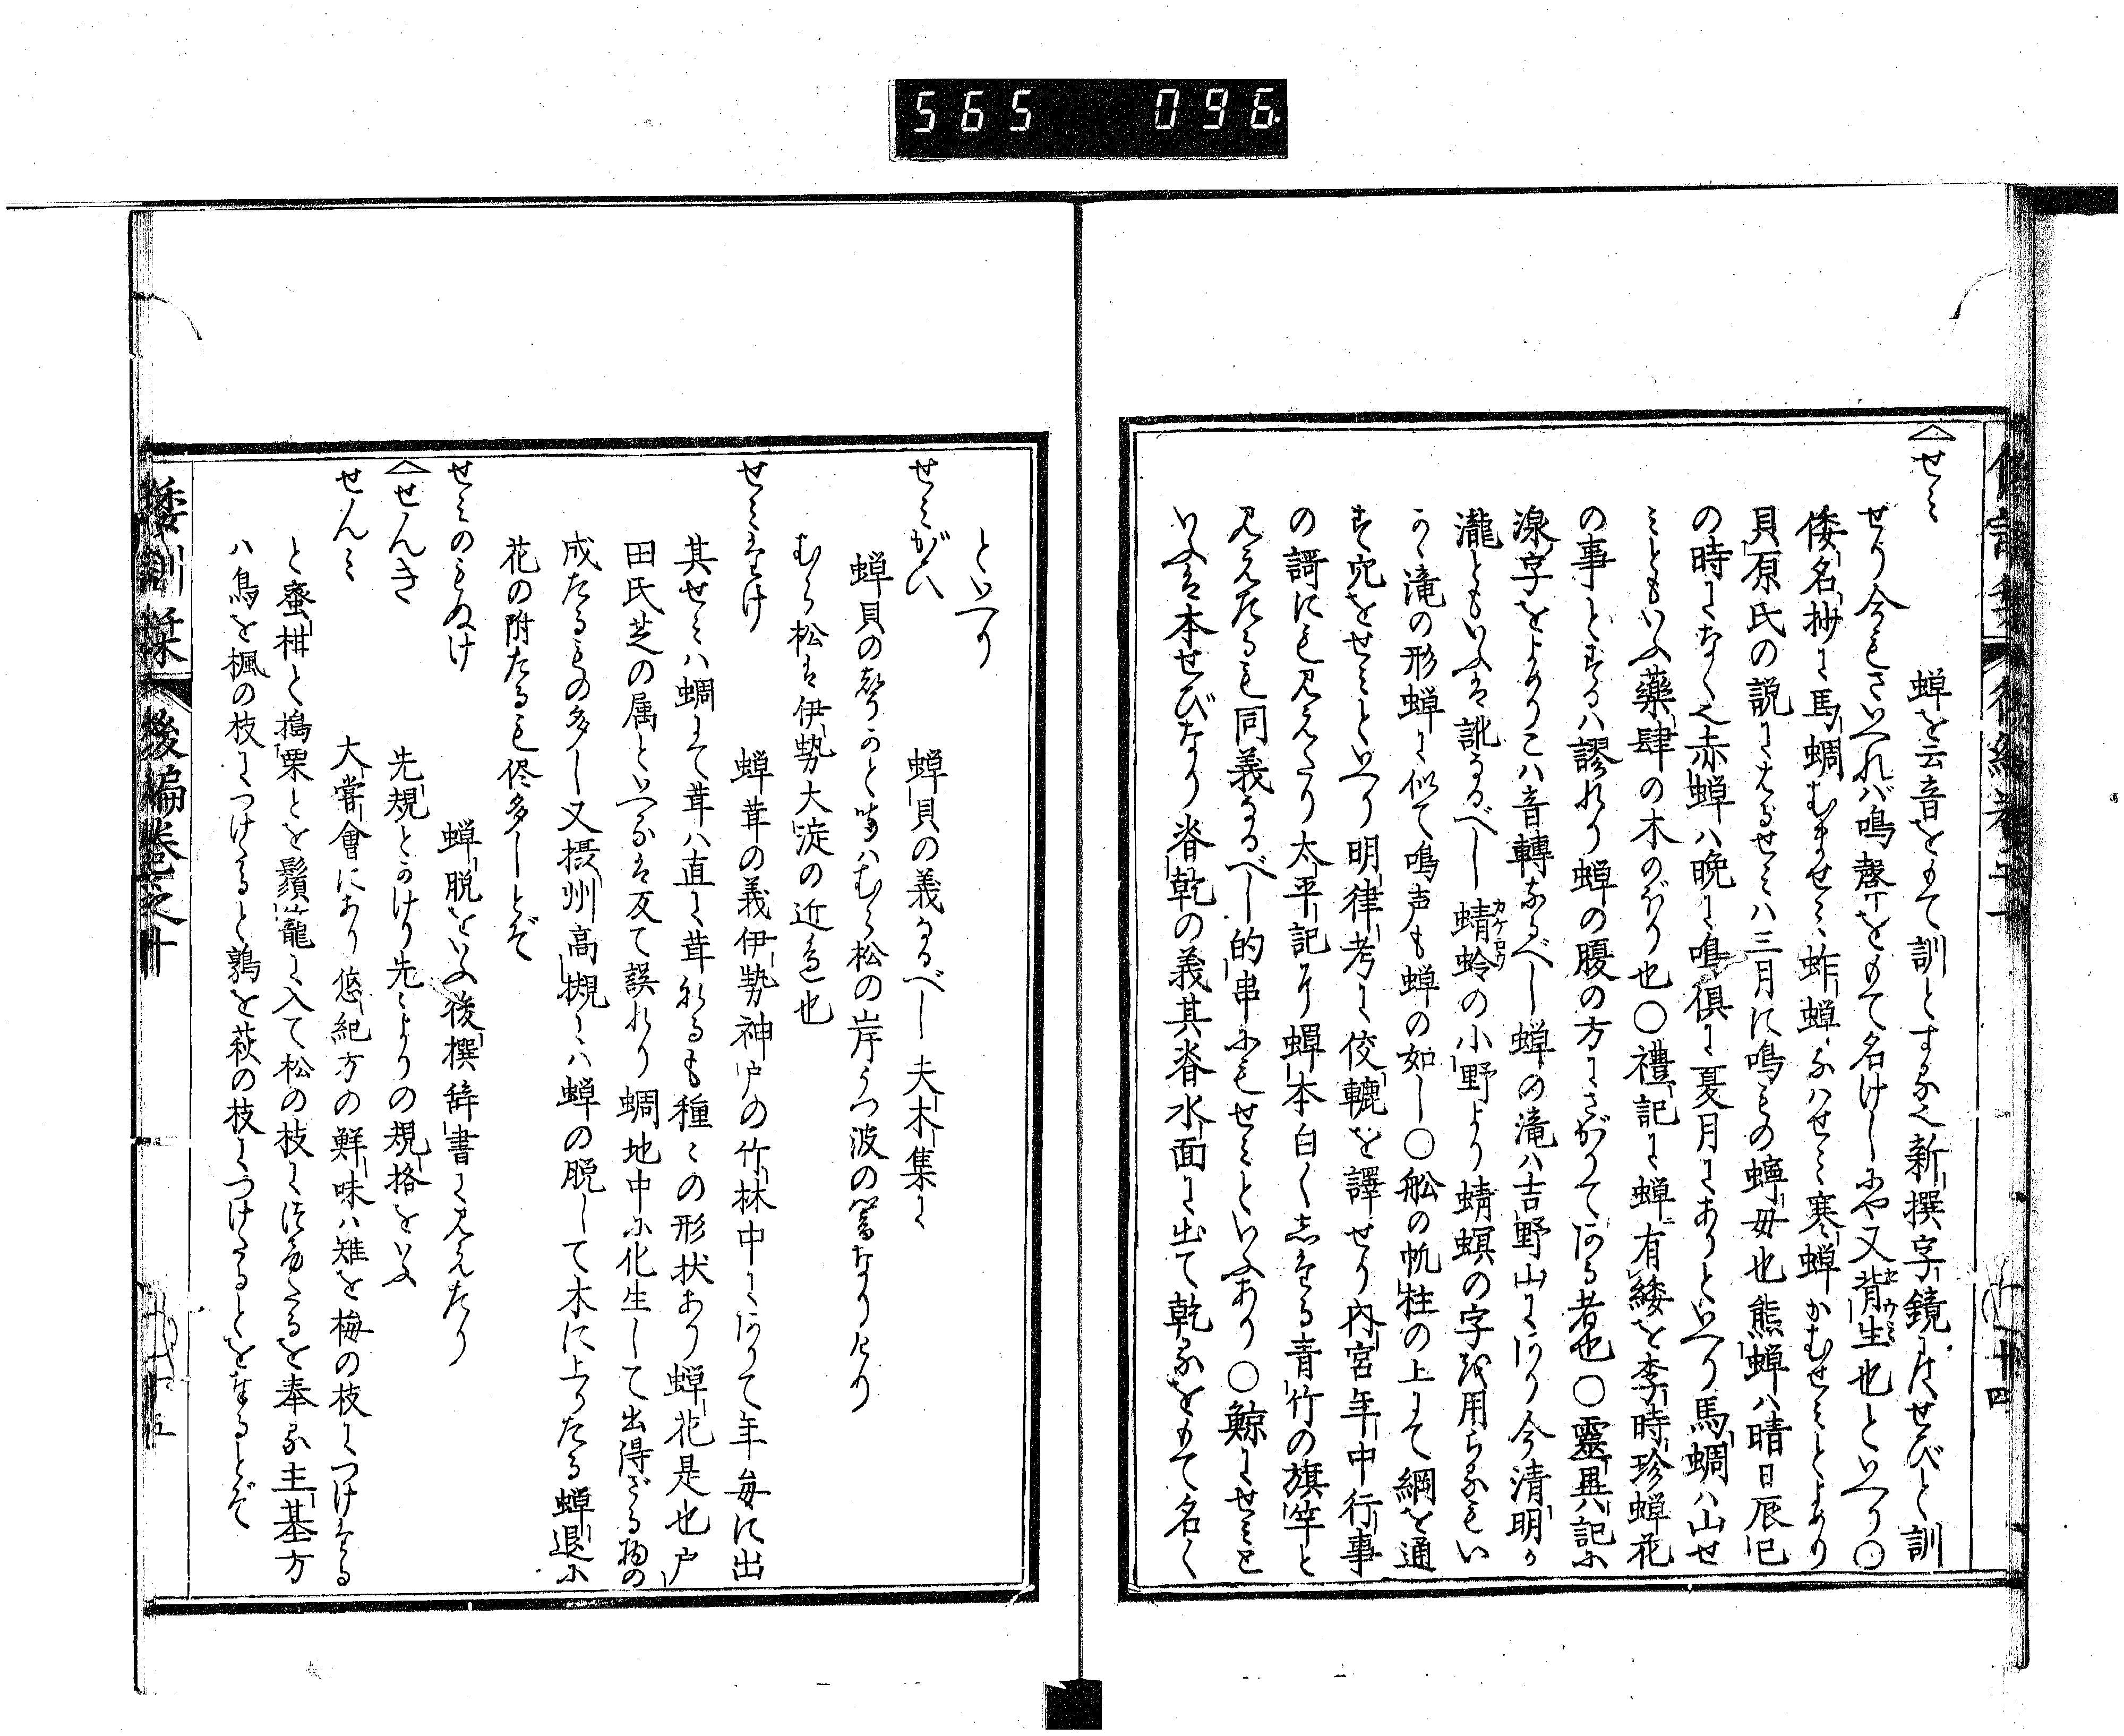 565 096
〈せミ
蝉を云音をもて訓とする之新撰字鏡にハせびと訓
せり今もさいへれバ鳴聲をもて名けしにや又背生也といへり〇
倭名抄に馬蜩むませミ蚱蝉なハせミ寒蝉かむせミとよめり
貝原氏の説にはるせミハ三月に鳴もの蟪母也熊蝉ハ晴日辰巳
の時になく之赤蝉ハ晩に鳴倶に夏月にありといへり馬蜩ハ山せ
ミともいふ藥肆の木のぼり也〇禮記に蝉有緌を李時珍蝉花
の事とするハ謬れり蝉の腹の方にさがりてある者也〇靈異記に
湶字をよめりこハ音轉なるべし蝉の滝ハ吉野山にあり今清明か
瀧ともいふは訛るべし蜻蛉の小野より蜻螟の字を用らるもい
かゝ滝の形蝉に似て鳴声も蝉の如し〇舩の帆柱の上にて綱を通
す穴をせミといへり明律考に佼轆を譯せり内宮年中行事
の謌にも見えたり太平記に蝉本白くしたる青竹の旗竿と
見えたるも同義なるべし的串にもせミといふあり〇鯨にせミと
いふは本せびなり脊乾の義其脊水面に出て乾るをもて名く
といへり
せミがひ
蝉貝の義なるべし夫木集に
蝉貝の聲かと聞ハむら松の岸うつ波の響なりけり
むら松は伊勢大淀の近邊也
せミたけ
蝉茸の義伊勢神戸の竹林中にありて年毎に出
其せミハ蜩にて茸ハ直に茸なるも種々の形状あり蝉花是也戸
田氏芝の属といへるは反て誤れり蜩地中に化生して出得ざる物の
成たるもの多し又摂州高槻にハ蝉の脱して木に上りたる蝉退に
花の附たるも侭多しとぞ
せミのもぬけ
蝉脱をいふ後撰辞書に見えたり
〈せんき
先規とかけり先々よりの規格をいふ
せんミ
大甞會にあり悠紀方の鮮味ハ雉を梅の枝につけたる
と蜜柑と搗栗とを鬚籠に入て松の枝に結たるを奉る主基方
ハ鳥を楓の枝につけたると鶉を萩の枝につけたるとを奉るとぞ
倭訓栞 後編巻之十
十四
十五